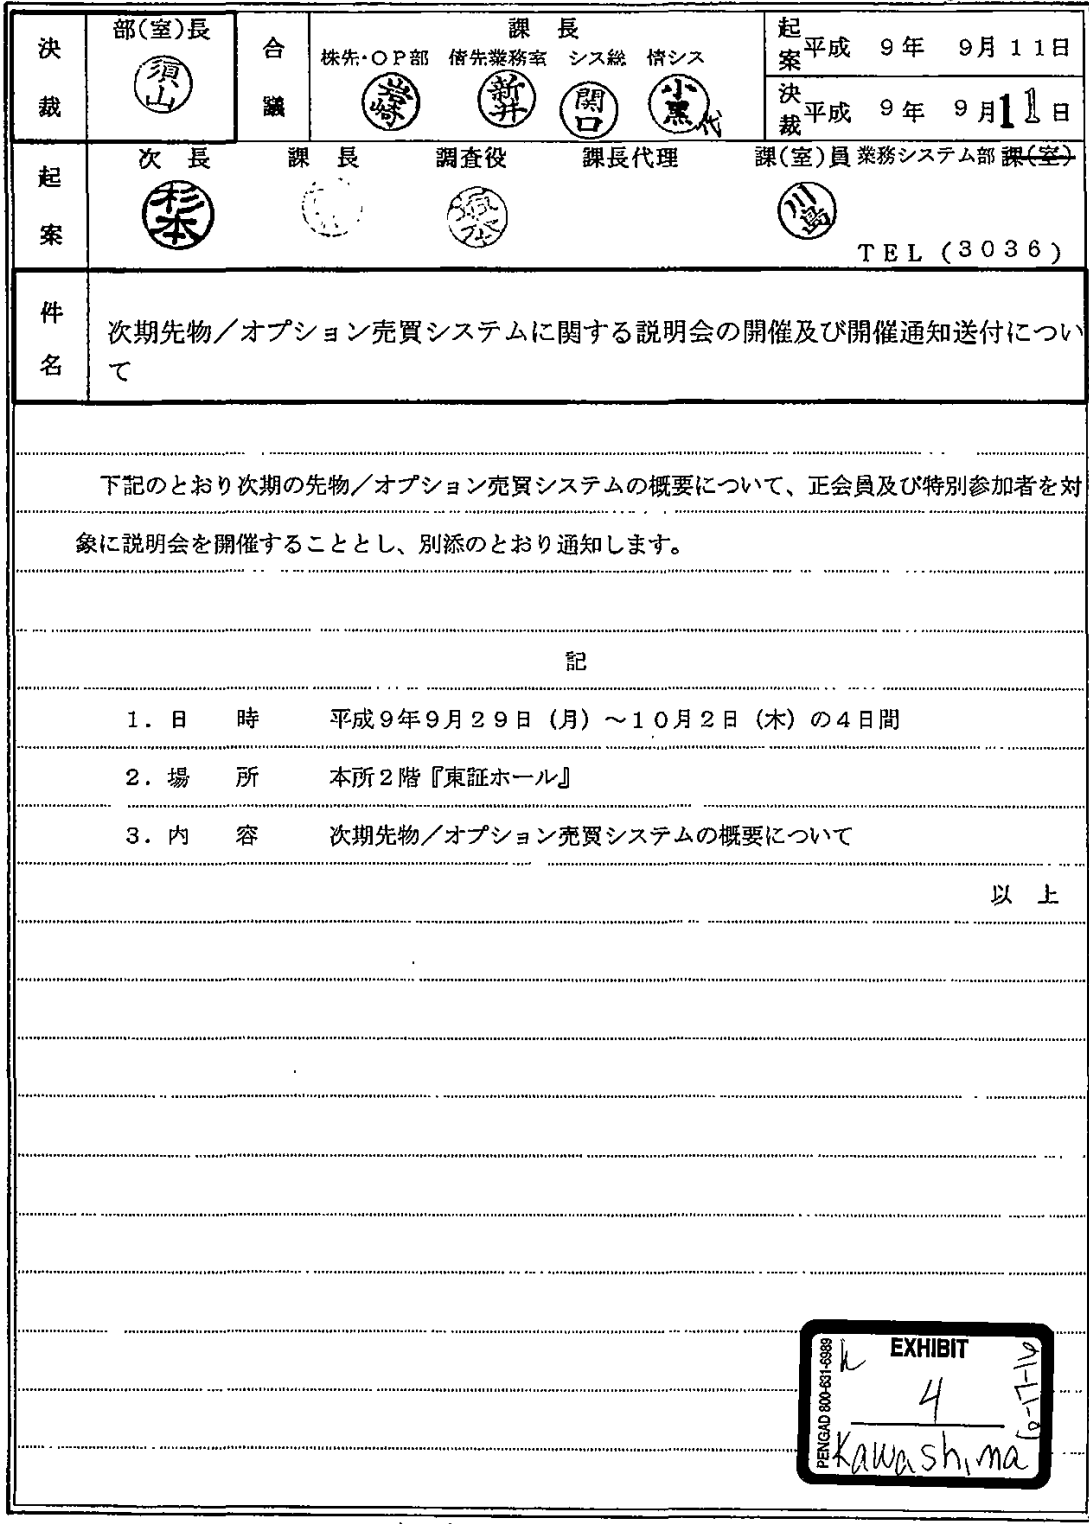 決裁 部(室)長 合議 課 長 起案 平成 9年 9月11日
株先・OP部 債先業務室 シス総 情シス
須山 岩崎 新井 関口 小黒 代
決裁 平成 9年 9月11日
起案 次 長 課 長 調査役 課長代理 課(室)員 業務システム部 課(室)
杉本 川島
TEL (3036)
件名 次期先物/オプション売買システムに関する説明会の開催及び開催通知送付につい
て
下記のとおり次期の先物/オプション売買システムの概要について、正会員及び特別参加者を対
象に説明会を開催することとし、別添のとおり通知します。
記
1.日 時 平成9年9月29日(月)~10月2日(木)の4日間
2.場 所 本所2階『東証ホール』
3.内 容 次期先物/オプション売買システムの概要について
以 上
PENGAD 800-631-6989
EXHIBIT
4
Kawashima